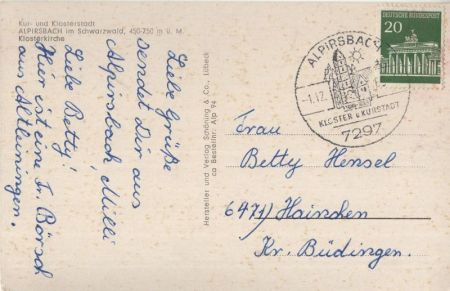 Kur- und Klosterstadt
ALPIRSBACH im Schwarzwald, 450-750 m ü. M.
Klosterkirche
Liebe Grüße
sendet Dir aus
Alpirsbach, Milli
Liebe Betty!
Hier ist eine Fr. Börsch
aus Altleiningen.
Hersteller und Verlag Schöning & Co., Lübeck
ca Bestellnr.: Alp 94
ALPIRSBACH
KLOSTER u KURSTADT
7297
DEUTSCHE BUNDESPOST
20
Frau
Betty Hensel
6471) Hainchen
Kr. Büdingen.